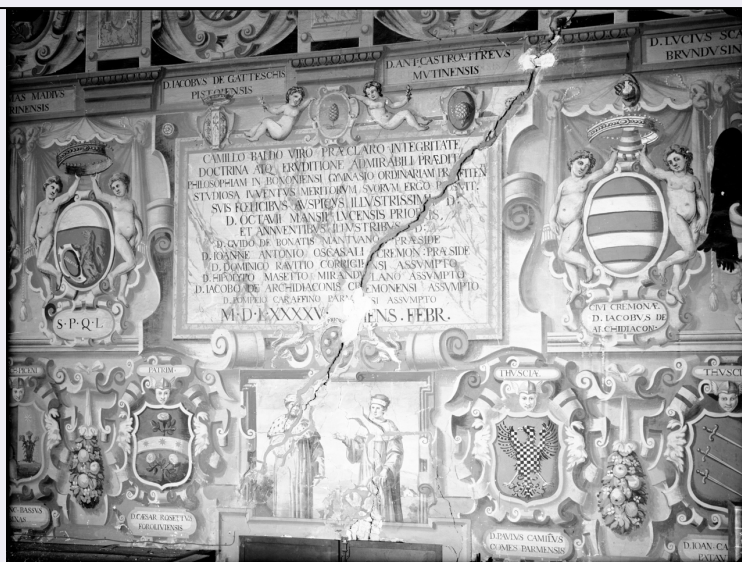 D. LUCIUS SCA
BRUNDUSIN
D. ANT. CASTROVITREUS
MUTINENSIS
D. IACOBUS DE GATTESCHIS
PISTORIENSIS
AS MADIUS
RINENSIS
CAMILLO BALDO VIRO PRÆCLARO INTEGRITATE
DOCTRINA ATQ ERUDITIONE ADMIRABILI PRÆDITO
PHILOSOPHIAM IN BONONIENSI GIMNASIO ORDINARIAM
STUDIOSA IUVENTUS MERITORUM SUORUM ERGO
SUIS FOELICIBUS AUSPICIIS ILLUSTRISSIMI D.
D. OCTAVII MANSII LUCENSIS PRIORIS,
ET ANNVENTIBUS ILLUSTRIBUS D:
D. GUIDO DE BONATIS MANTUANO PRÆSIDE
D. IOANNE ANTONIO OSCASALI CREMON: PRÆSIDE
D. DOMINICO RAVITIO CORRIGIENSI ASSUMPTO
D. HIPOLITO MASETTO MIRANDULANO ASSUMPTO
D. IACOBO DE ARCHIDIACONIS CREMONENSI ASSUMPTO
D. POMPEIO CARAFFINO PARMENSI ASSUMPTO
M·D·LXXXXV· MENS. FEBR.
S·P·Q·L
CIVI CREMONÆ
D. IACOBUS DE
ARCHIDIACON:
PATRIM:
THUSCIÆ
THUSCI
C. BASSUS
D. CÆSAR ROSETTUS
FOROLIVIENSIS
D. PAULUS CAMILUS
COMES PARMENSIS
D. IOAN. CA
PATAV